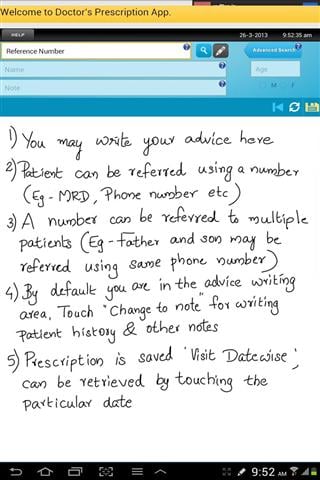 Welcome to Doctor's Prescription App.
HELP 26-3-2013 9:52:35 am
Reference Number ? Advanced Search ?
Name ? Age
Note ? M F
1) You may write your advice here
2) Patient can be referred using a number
(Eg - MRD, Phone number etc)
3) A number can be referred to multiple
patients (Eg - Father and son may be
referred using same phone number)
4) By default you are in the advice writing
area, Touch "Change to note" for writing
Patient history & other notes
5) Prescription is saved 'Visit Datewise',
can be retrieved by touching the
particular date
9:52 AM